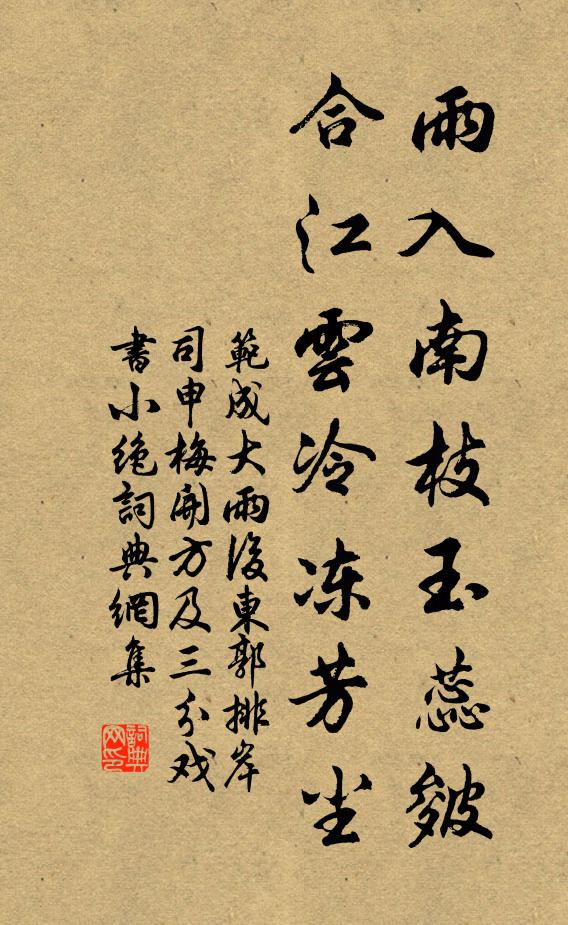 雨入南枝玉蕊皴
合江雲冷冻芳尘
範成大雨後東郭排岸
司申梅開方及三分戏
書小绝詞典網集
詞典网印